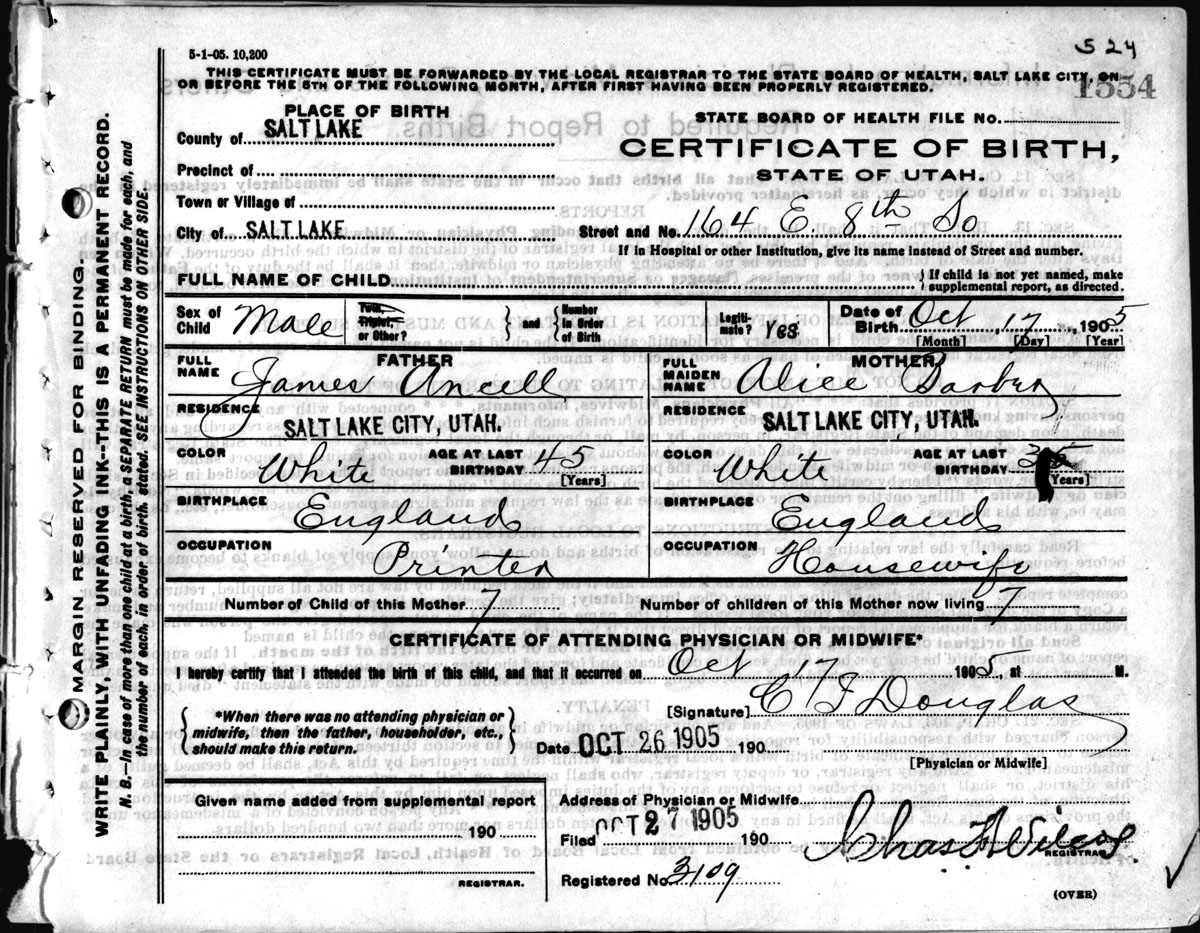 524
5-1-05. 10,200
1554
THIS CERTIFICATE MUST BE FORWARDED BY THE LOCAL REGISTRAR TO THE STATE BOARD OF HEALTH, SALT LAKE CITY, ON
OR BEFORE THE 5TH OF THE FOLLOWING MONTH, AFTER FIRST HAVING BEEN PROPERLY REGISTERED.
PLACE OF BIRTH
County of SALT LAKE
Precinct of
Town or Village of
City of SALT LAKE
STATE BOARD OF HEALTH FILE No.
CERTIFICATE OF BIRTH,
STATE OF UTAH.
Street and No. 164 E 8th So
If in Hospital or other Institution, give its name instead of Street and number.
FULL NAME OF CHILD
} If child is not yet named, make
supplemental report, as directed.
Sex of Child Male
Twin, Triplet, or Other?
} and { Number in Order of Birth
Legiti-mate? Yes
Date of Birth Oct 17, 1905
[Month] [Day] [Year]
FATHER
FULL NAME James Ancell
RESIDENCE SALT LAKE CITY, UTAH.
COLOR White AGE AT LAST BIRTHDAY 45 [Years]
BIRTHPLACE England
OCCUPATION Printer
MOTHER
FULL MAIDEN NAME Alice Barber
RESIDENCE SALT LAKE CITY, UTAH.
COLOR White AGE AT LAST BIRTHDAY [Years]
BIRTHPLACE England
OCCUPATION Housewife
Number of Child of this Mother 7 Number of children of this Mother now living 7
CERTIFICATE OF ATTENDING PHYSICIAN OR MIDWIFE*
I hereby certify that I attended the birth of this child, and that it occurred on Oct 17 1905, at M.
{ *When there was no attending physician or
midwife, then the father, householder, etc.,
should make this return. }
[Signature] C F Douglas
Date OCT 26 1905 190
[Physician or Midwife]
Given name added from supplemental report
190
REGISTRAR.
Address of Physician or Midwife
Filed OCT 27 1905 190
Chas F Wilcox
REGISTRAR
Registered No. 3109
(OVER)
MARGIN RESERVED FOR BINDING.
WRITE PLAINLY, WITH UNFADING INK--THIS IS A PERMANENT RECORD.
N. B.—In case of more than one child at a birth, a SEPARATE RETURN must be made for each, and
the number of each, in order of birth, stated. SEE INSTRUCTIONS ON OTHER SIDE